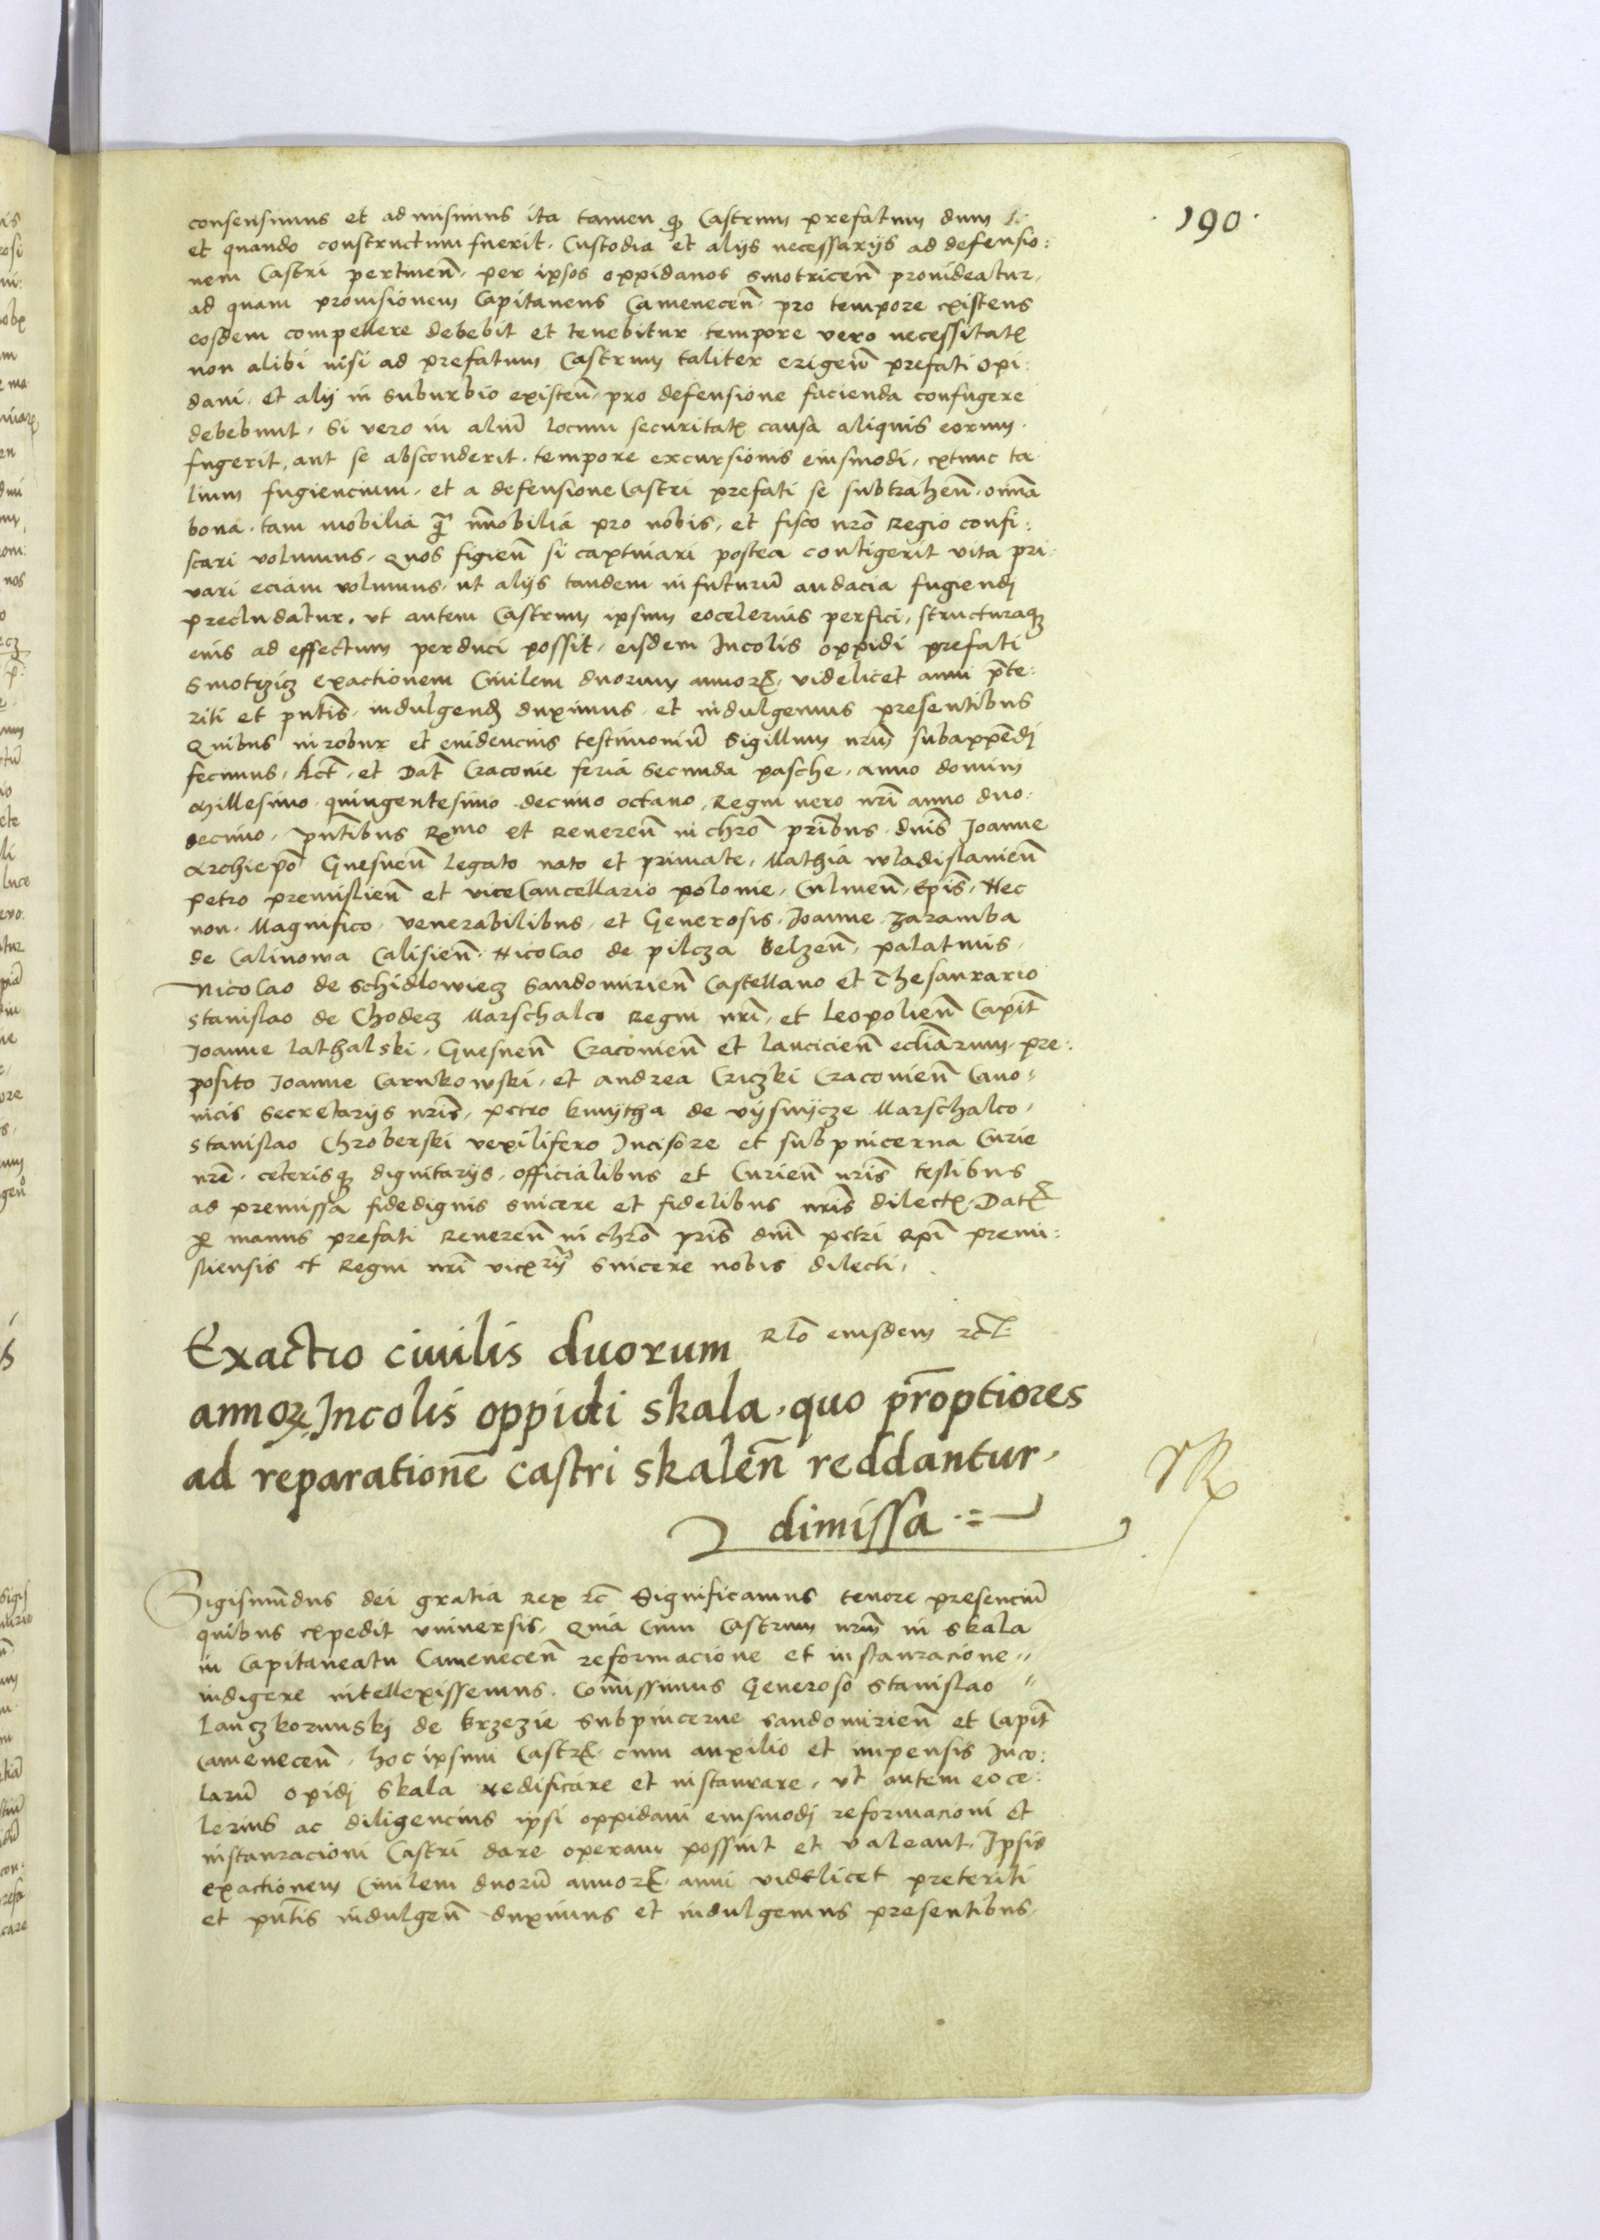 ·190·
consensimus et admisimus ita tamen qȝ Castrum prefatum dum
et quando constructum fuerit, Custodia et alijs necessarijs ad defensio:
nem Castri pertinen̄, per ipsos oppidanos Smotricen̄ prouideatur,
ad quam prouisionem Capitaneus Camenecen̄ pro tempore existens
eosdem compellere debebit et tenebitur tempore vero necessitatꝭ
non alibi nisi ad prefatum Castrum taliter erigen̄ prefati opi:
dani, et alij in suburbio existen̄, pro defensione facienda confugere
debebunt, Si vero in aliū locum securitatꝭ causa aliquis eorum
fugerit, aut se absconderit, tempore excursionis eiusmodi, extunc ta
lium fugiencium, et a defensione Castri prefati se subtrahen̄, om̄ia
bona, tam mobilia qͣ̄ im̄obilia pro nobis, et fisco nr̄o Regio confi:
scari volumus, Quos figien̄ si captiuari postea contigerit vita pri:
vari eciam volumus, ut alijs tandem in futurū audacia fugiendj
precludatur, vt autem Castrum ipsum eocelerius perfici, structuraqȝ
eius ad effectum perduci possit, eisdem Incolis oppidi prefati
Smotrzicȝ exactionem Ciuilem duorum annorꝝ, videlicet anni p̄te:
riti et pn̄tis, indulgend̄ duximus, et indulgemus presentibus
Quibus in robur et euidencius testimoniū Sigillum nr̄um subappēdj
fecimus, Act̄, et Dat̄ Cracouie feria Secunda pasche, anno domini
Millesimo quingentesimo decimo octauo, Regni vero nr̄i anno duo:
decimo, pn̄tibus Rx̄mo et Reueren̄ in chr̄o pr̄ibus dn̄is Joanne
Archiepō Gnesnen̄ Legato nato et primate, Mathia wladislauien̄
Petro premislien̄ et viceCancellario polonie, Culmen̄, Ep̄is, Nec
non, Magnifico, venerabilibus, et Generosis, Joanne zaramba
de Calinowa Calisien̄, Nicolao de pilcza Belzen̄, palatinis,
Nicolao de Schidlowiecȝ Sandomirien̄ Castellano et Thesaurario
Stanislao de Chodecȝ Marschalco Regni nr̄i, et Leopolien̄ Capit̄
Joanne Lathalski, Gnesnen̄ Cracouien̄ et Lancicien̄ eccliārum, pre:
posito Joanne Carnkowski, et Andrea Criczki Cracouien̄ Cano=
nicis Secretarijs nr̄is, petro kmytha de vysnycze Marschalco,
Stanislao Chroberski vexilifero Incisore et subpincerna Curie
nr̄e, ceterisqȝ dignitarijs, officialibus et Curien̄ nr̄is testibus
ad premissa fidedignis sincere et fidelibus nr̄is dilectꝭ, Datꝝ
ꝑ manus prefati Reueren̄ in chr̄o pr̄is dn̄i petri Ep̄i premi:
sliensis et Regni nr̄i vicx̄rij Sincere nobis dilecti,
Exactio ciuilis duorum Rl̄o eiusdem
annorꝝ Incolis oppidi skala, quo prōptiores
ad reparationē castri skalen̄ reddantur,
dimissa
Sigismūdus dei gratia Rex rc̄ Significamus tenore presenciū
quibus expedit vniuersis, Quia cum Castrum nr̄um in Skala
in Capitaneatu Camenecen̄ reformacione et instauracione
indigere intellexissemus, Com̄isimus Generoso Stanislao
Lanczkorunskj de Brzezie Subpincerne Sandomirien̄ et Capit̄
Camenecen̄, hoc ipsum Castrꝝ, cum auxilio et impensis Inco:
larū opidj Skala redificare et instaurare, vt autem eoce:
lerius ac diligencius ipsi oppidani eiusmodj reformacioni et
instauracioni Castri dare operam possint et valeant, Ipsis
exactionem Ciuilem duorū annorꝝ, anni videlicet preteriti
et pn̄tis indulgen̄ duximus et indulgemus presentibus,